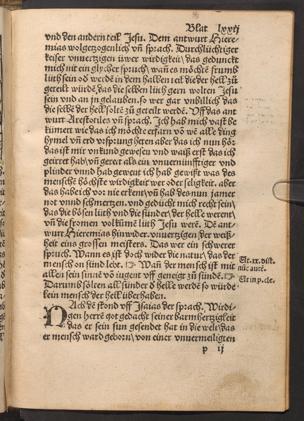 Blat lxxij
vnd den andern teil Jesu. Dem antwurt Hiere-
mias wolgezogenlich vn̄ sprach. Durchlüchtiger
keiser vnuertzigen üwer wirdigkeit das gedunckt
mich nit ein glycher spruch wan es möchtē frumb
lüth sein ob werde in dem halben teil der hell zů
geteilt würdē das die selben lüth gern wolten Jesu
sein vnd an jn gelauben. so wer gar vnbillich das
die selbē der hell soltē zů geteilt werdē. Vff das ant
wurt Arestotiles vn̄ sprach. Ich hab mich vast be
kümert wie das ich möchte erfarn vō wē alle ding
hymel vn̄ erd vrsprung heten aber das ich nun hōr
das ist mir vnkund gewesen vnd weiß erst das ich
geirret hab vn̄ gereit als ein vnuernünfftiger vnd
plinder vnnd hab gewent ich hab gewist was des
menschē höchste wirdigkeit wer oder seligkeit. aber
das habe ich vor nie erkent vn̄ hab des nun jamer
not vnnd schmertzen. vnd gedücht mich recht sein
das die bösen lüth vnd die sünder der helle weren
vn̄ die fromen volkümē lüth Jesu werē. De ant-
wurt Hieremias hinwider. vnuertzigen der weiß-
heit eins grossen meisters. Das wer ein schwerer
spruch. Wann es ist doch wider die natur das der
mensch on sünd lebe. Wan̄ der mensch ist mit
allen sein sinnē vō iugent vff geneigt zů sündē.
Darumb sölten all sünder d helle werdē so würde
kein mensch der hell überhaben.
Ach de stond vff Isaias der sprach. Wirdi-
gen herrē got gedacht seiner barmhertzigkeit
das er sein sun gesendet hat in die welt das
er mensch ward geborn von einer vnuermeiligten
p ij